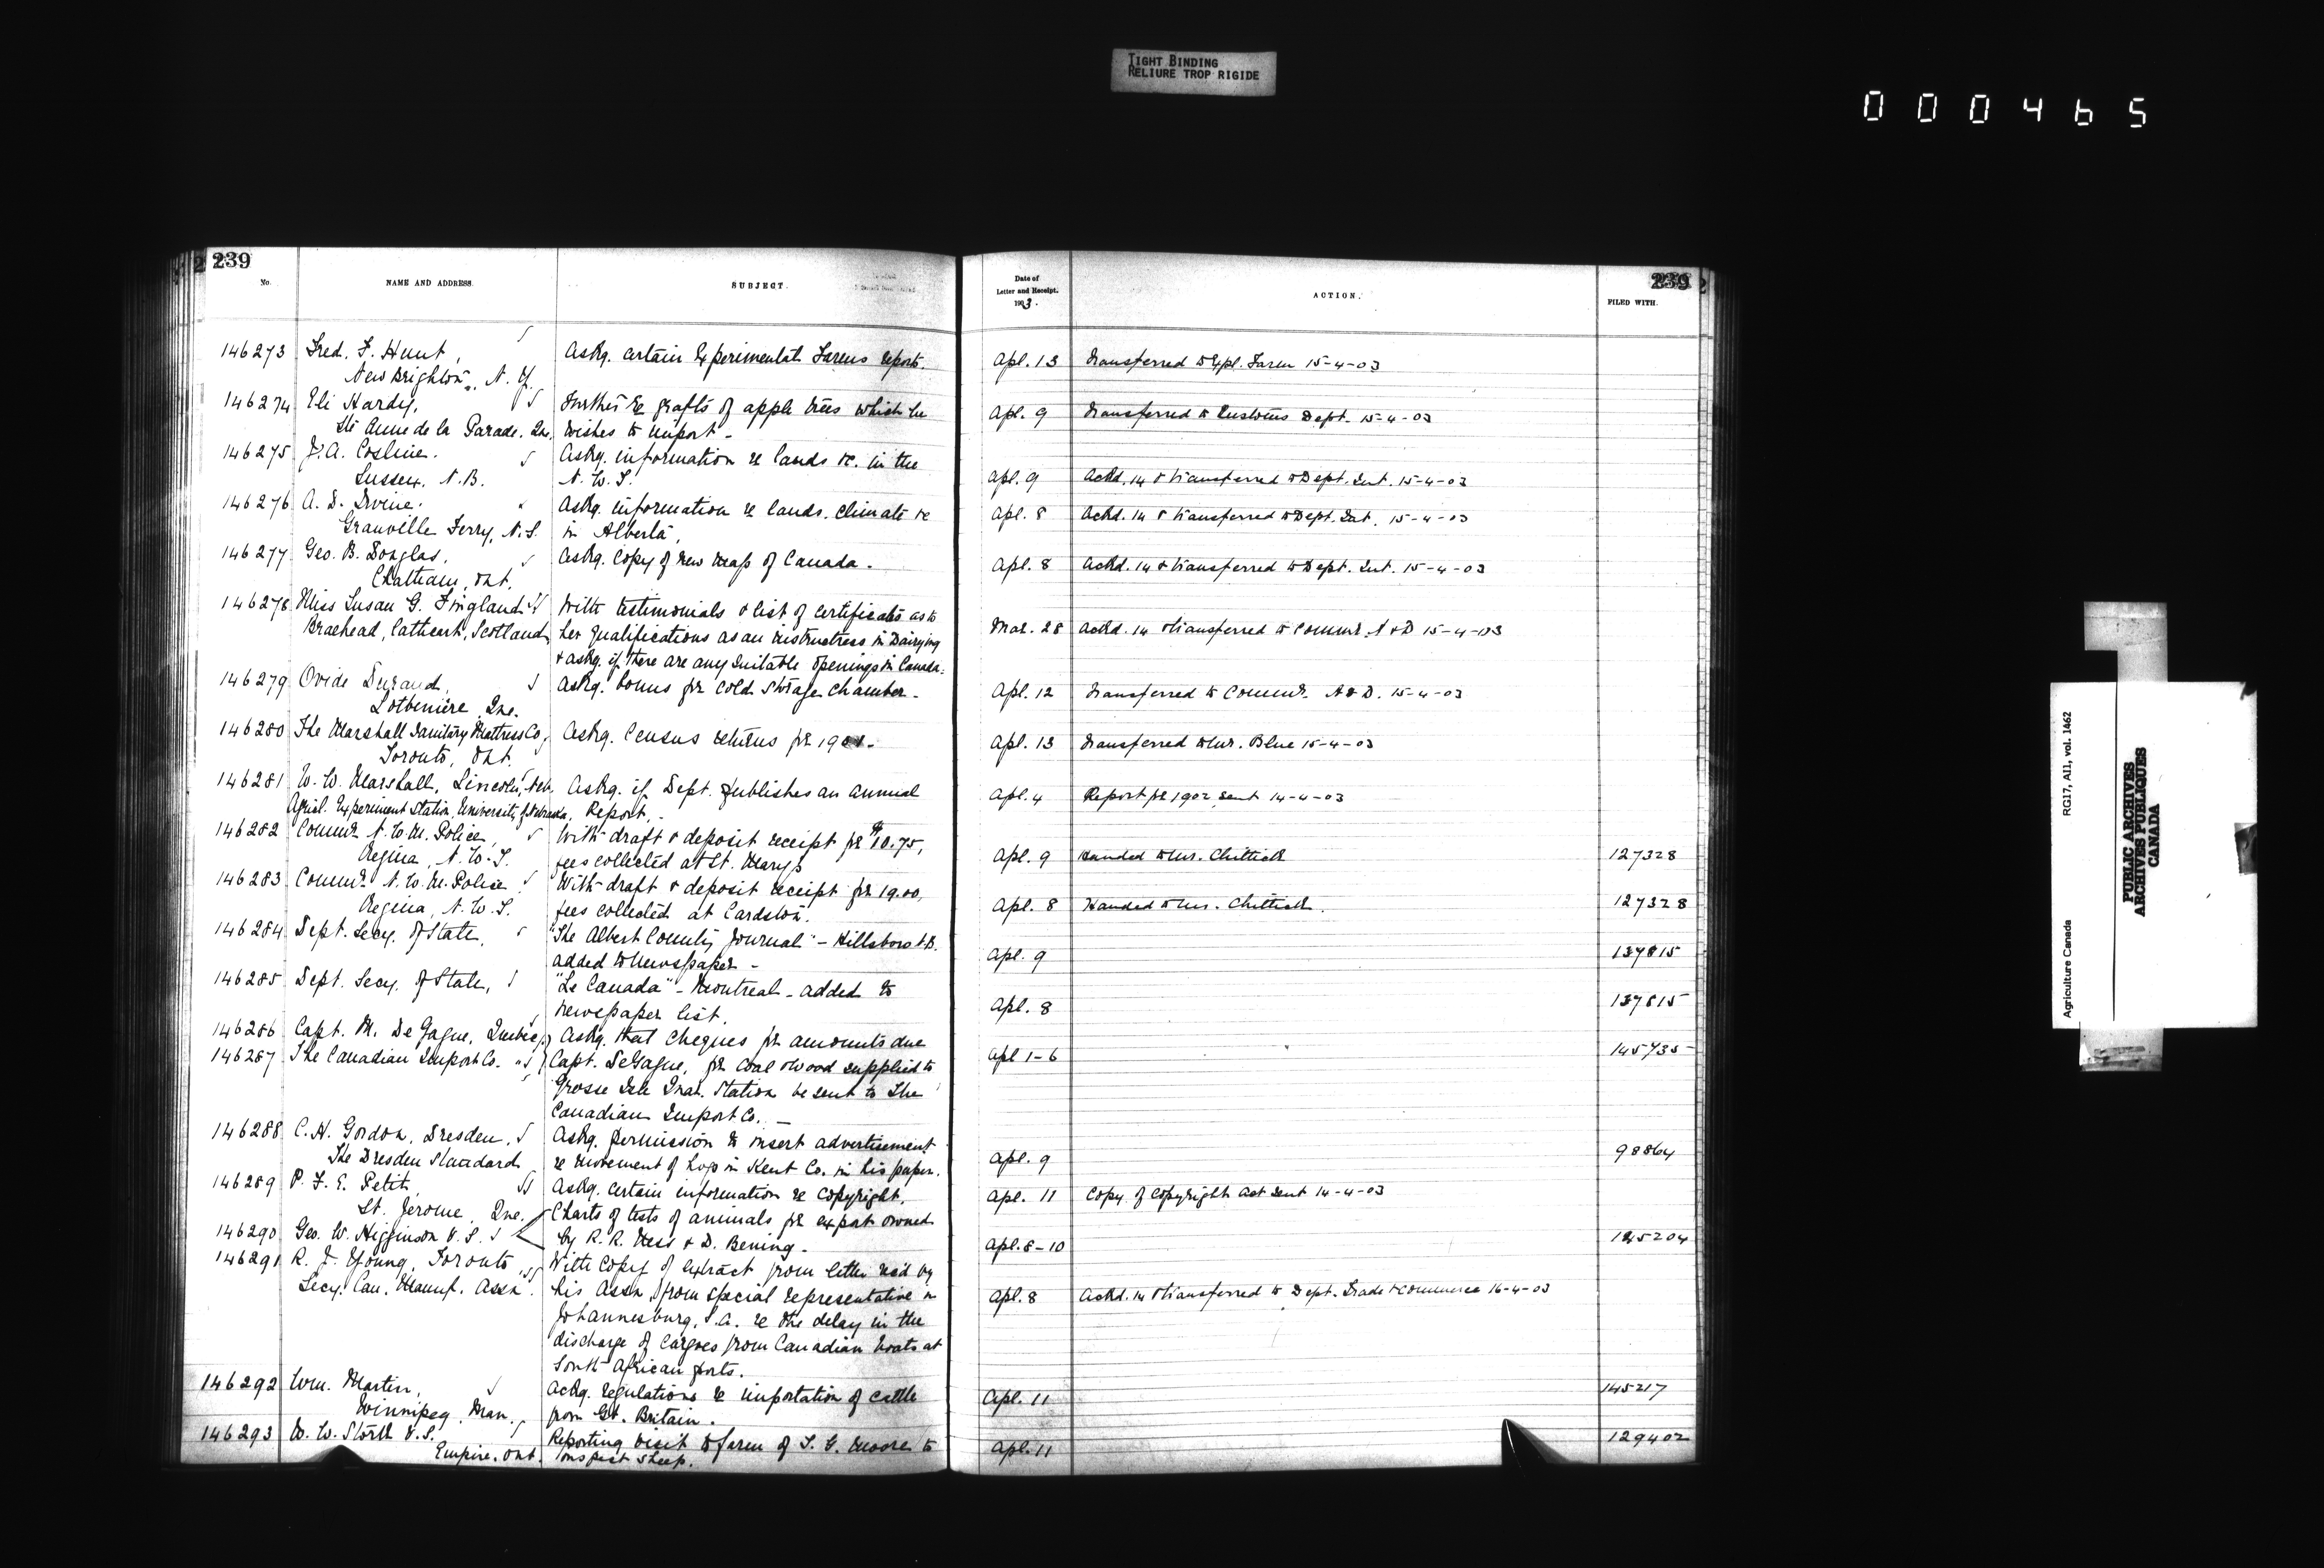 TIGHT BINDING
RELIURE TROP RIGIDE
000465
239
No.
NAME AND ADDRESS.
SUBJECT.
Date of
Letter and Receipt.
1903.
ACTION.
239
FILED WITH.
146273 Fred. F. Hunt, Askg. certain Experimental Farms reports. Apl. 13 Transferred to Expl. Farm 15-4-03
New Brighton, N. Y.
146274 Eli Hardy, Further re grafts of apple trees which he Apl. 9 Transferred to Customs Dept. 15-4-03
Ste Anne de la Parade. Que. wishes to import -
146275 J. A. Cosline. Askg. information re lands &c. in the
Sussex, N.B. N. W. T. Apl. 9 Ackd. 14 & transferred to Dept. Int. 15-4-03
146276 A. D. Irvine. Askg. information re lands, climate &c Apl. 8 Ackd. 14 & transferred to Dept. Int. 15-4-03
Granville Ferry, N.S. in Alberta,
146277 Geo. B. Douglas, Askg. copy of new map of Canada - Apl. 8 Ackd. 14 & transferred to Dept. Int. 15-4-03
Chatham, Ont.
146278 Miss Susan G. Fingland With testimonials & list of certificates as to
Braehead, Cathcart, Scotland, her qualifications as an instructress in Dairying Mar. 28 Ackd. 14 & transferred to Commr. A & D 15-4-03
& askg. if there are any suitable openings in Canada.
146279 Ovide Durand, Askg. bonus for cold storage chamber - Apl. 12 Transferred to Commr. A & D. 15-4-03
Lotbiniere, Que.
146280 The Marshall Sanitary Mattress Co, Askg. Census returns for 1901. Apl. 13 Transferred to Mr. Blue 15-4-03
Toronto, Ont.
146281 W. W. Marshall, Lincoln, Neb. Askg. if Dept. publishes an annual Apl. 4 Report for 1902 sent 14-4-03
Agricl. Experiment Station, University of Nebraska, Report. -
146282 Commr. N. W. M. Police, With draft & deposit receipt for $10.75,
Regina, N. W. T. fees collected at St. Marys Apl. 9 Handed to Mr. Chittick 127328
146283 Commr. N. W. M. Police With draft & deposit receipt for 19.00,
Regina, N. W. T. fees collected at Cardston. Apl. 8 Handed to Mr. Chittick. 127328
146284 Dept. Secy. of State, "The Albert County Journal" - Hillsboro N.B.
added to Newspaper - Apl. 9 137815
146285 Dept. Secy. of State, "Le Canada" - Montreal - added to
newspaper list. Apl. 8 137815
146286 Capt. M. De Gagne, Quebec, Askg. that cheques for amounts due
146287 The Canadian Import Co. " Capt. DeGagne, for coal & wood supplied to Apl 1-6 145735
Grosse Isle Quar. Station be sent to The
Canadian Import Co. -
146288 C. H. Gordon, Dresden, Askg. permission to insert advertisement
The Dresden Standard re movement of hogs in Kent Co. in his paper. Apl. 9 98864
146289 P. F. E. Petit Askg. certain information re Copyright. Apl. 11 Copy of Copyright Act sent 14-4-03
St. Jerome, Que.
Charts of tests of animals for export owned
146290 Geo. W. Higginson V. S. by R. R. Ness & D. Bening - Apl. 8-10 145204
146291 R. J. Young, Toronto, With copy of extract from letter recd by
Secy. Can. Manuf. Assn. his Assn. from special representative in Apl. 8 Ackd. 14 & transferred to Dept. Trade & Commerce 16-4-03
Johannesburg, S.A. re the delay in the
discharge of cargoes from Canadian boats at
South African ports.
146292 Wm. Martin, Askg. regulations re importation of cattle Apl. 11 145217
Winnipeg, Man. from Gt. Britain.
146293 W. W. Stork V.S. Reporting visit to farm of T. G. Moore to Apl. 11 129402
Empire, Ont. inspect sheep.
Agriculture Canada RG17, AII, vol. 1462
PUBLIC ARCHIVES
ARCHIVES PUBLIQUES
CANADA